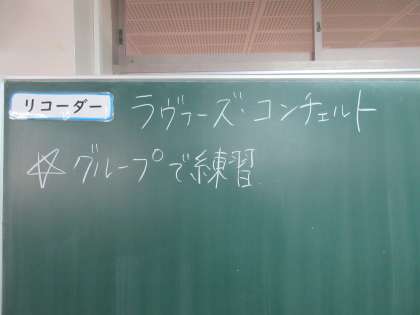 リコーダー ラヴァーズ・コンチェルト
☆グループで練習